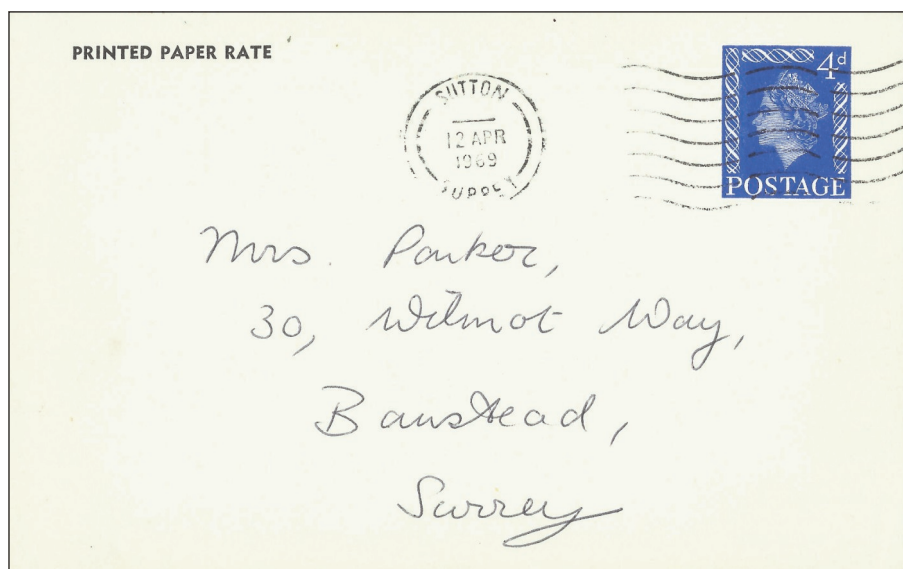 PRINTED PAPER RATE
4d
SUTTON
12 APR
1969
SURREY
POSTAGE
Mrs. Parker,
30, Wilmot Way,
Banstead,
Surrey